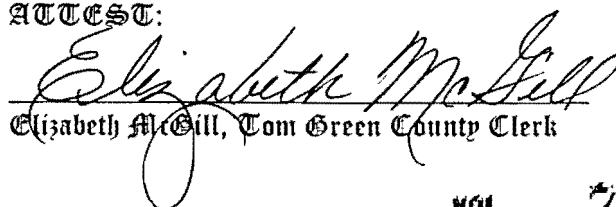 ATTEST:
Elizabeth McGill
Elizabeth McGill, Tom Green County Clerk